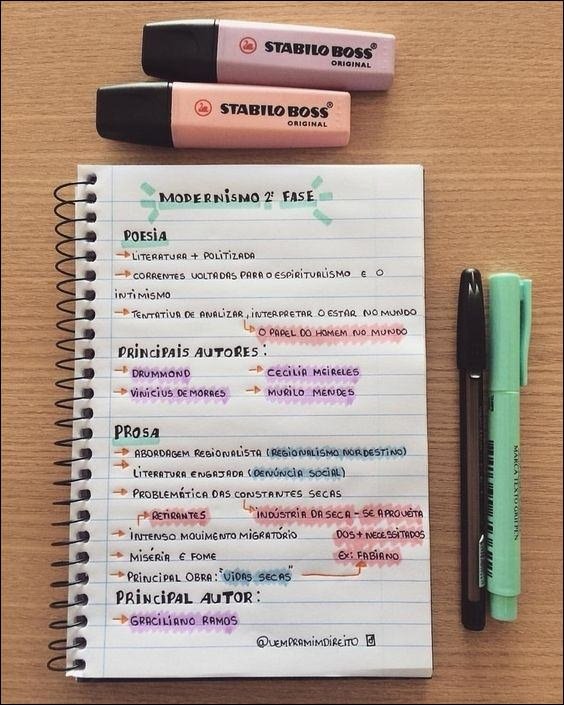 STABILO BOSS®
ORIGINAL
STABILO BOSS®
ORIGINAL
MODERNISMO 2ª FASE
POESIA
→ LITERATURA + POLITIZADA
→ CORRENTES VOLTADAS PARA O ESPIRITUALISMO E O
INTIMISMO
→ TENTATIVA DE ANALIZAR, INTERPRETAR O ESTAR NO MUNDO
↳ O PAPEL DO HOMEM NO MUNDO
PRINCIPAIS AUTORES:
→ DRUMMOND → CECÍLIA MEIRELES
→ VINICIUS DE MORAES → MURILO MENDES
PROSA
→ ABORDAGEM REGIONALISTA (REGIONALISMO NORDESTINO)
→ LITERATURA ENGAJADA (DENÚNCIA SOCIAL)
→ PROBLEMÁTICA DAS CONSTANTES SECAS
↳ RETIRANTES ↳ "INDÚSTRIA DA SECA - SE APROVEITA
→ INTENSO MOVIMENTO MIGRATÓRIO DOS + NECESSITADOS
→ MISÉRIA E FOME EX: FABIANO
→ PRINCIPAL OBRA: "VIDAS SECAS"
PRINCIPAL AUTOR:
→ GRACILIANO RAMOS
@VEMPRAMIMDIREITO
MARCA TEXTO GRIFPEN